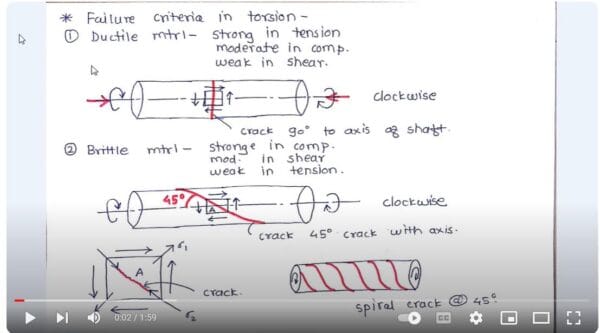 * Failure criteria in torsion -
① Ductile mtrl - strong in tension
moderate in comp.
weak in shear.
clockwise
crack 90° to axis of shaft.
② Brittle mtrl - stronge in comp.
mod. in shear
weak in tension.
45°
A
clockwise
crack 45° crack with axis.
σ1
A
crack.
σ2
spiral crack @ 45°
0:02 / 1:59